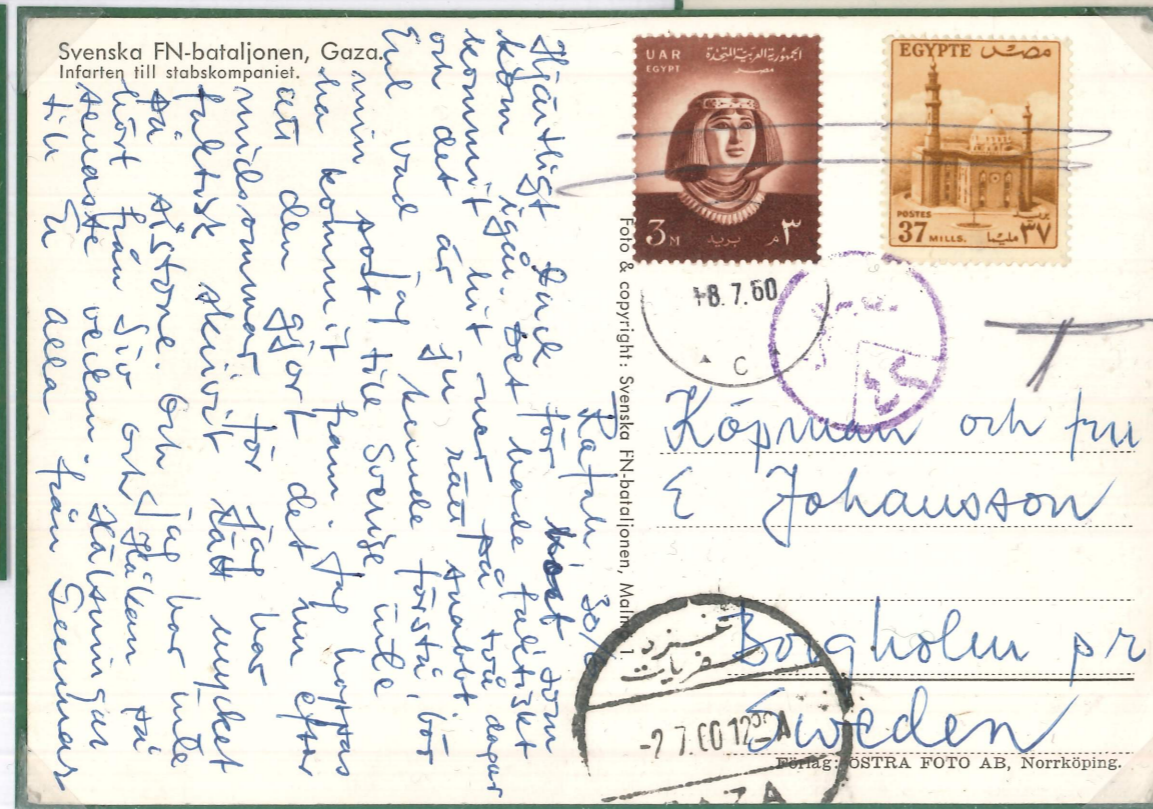 Svenska FN-bataljonen, Gaza.
Infarten till stabskompaniet.
Rafah 30/6
Hjärtligt tack för som
kom igår. Det hade faktiskt
kommit hit ner på två dagar
och det är ju rätt snabbt.
Enl vad jag kunde förstå, bör
min post till Sverige inte
ha kommit fram. Jag hoppas
att den gjort det nu efter
midsommar, för jag har
faktiskt skrivit rätt mycket
på sistone. Och jag har inte
hört från Siv och Håkan på
senaste veckan. Hälsningar
till Er alla från Gunnar
Foto & copyright: Svenska FN-bataljonen, Malmö 1
UAR
EGYPT
الجمهورية العربية المتحدة
مصر
3 M
بريد
٣ م
EGYPTE مصر
POSTES
بريد
37 MILLS.
٣٧ مليما
18.7.60
C
T
Köpman och fru
E Johansson
Borgholm pr
Sweden
غزة
سفريات
-2 7.60 12 A
GAZA
Förlag: ÖSTRA FOTO AB, Norrköping.